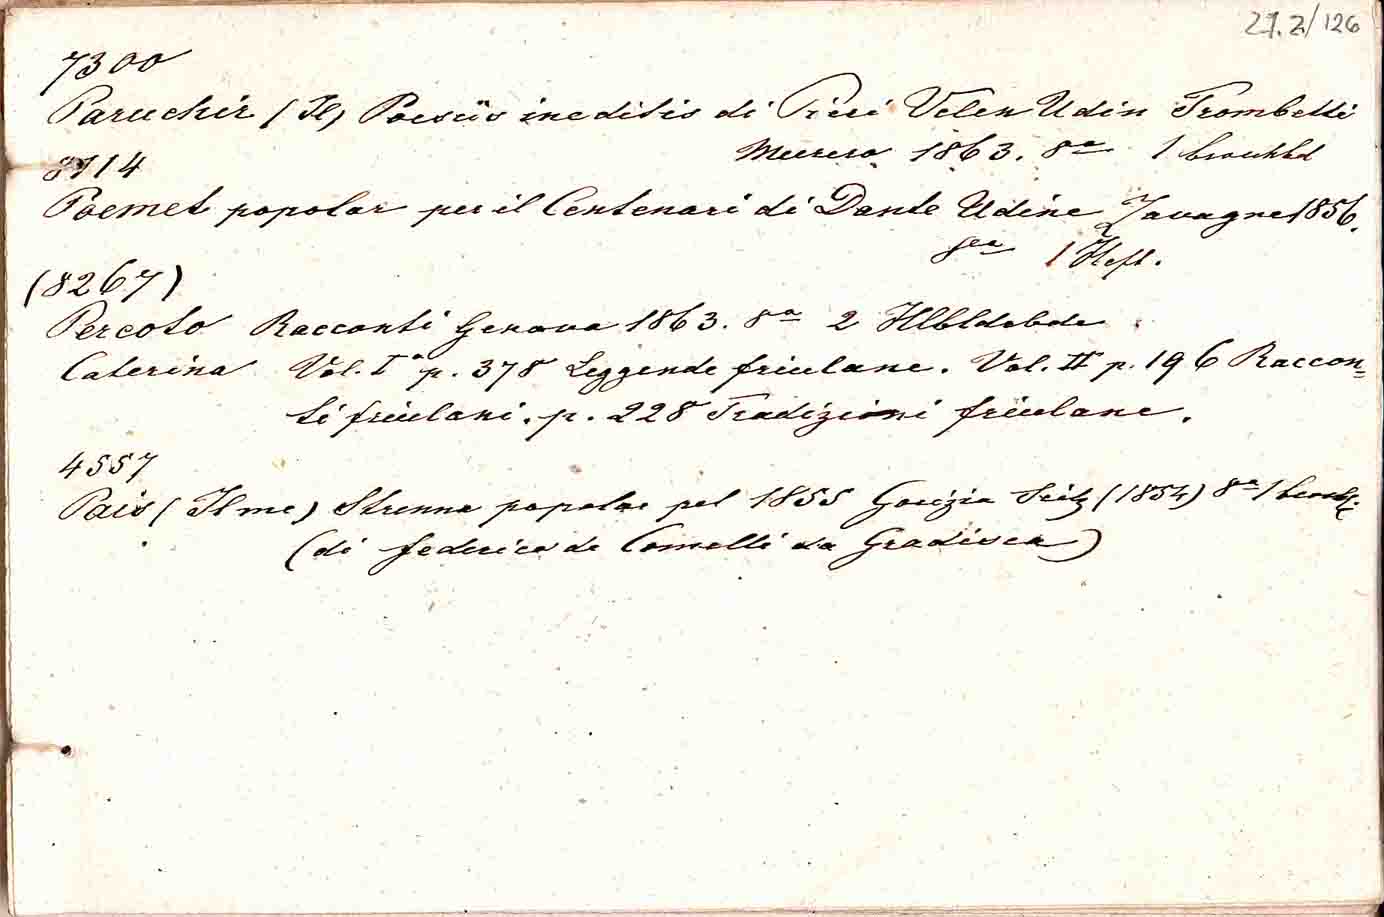 27.2/126
7300
Paruchir (Il) Poesiis ineditis di Pieri Velen Udin Trombetti
Murero 1863. 8ᵃ 1 brochbd
8114
Poemet popolar per il Centenari di Dante Udine Zavagne 1856.
8ᵛᵃ 1 Heft.
(8267)
Percoto Racconti Genova 1863. 8ᵃ 2 Hlbldbde
Caterina Vol. Iᵃ p. 378 Leggende friulane. Vol. II p. 196 Raccon=
ti friulani. p. 228 Tradizioni friulane.
4557
Pais (Il me) Strenna popolar pel 1855 Gorizia Seitz (1854) 8ᵃ 1 brochb.
(di federico de Comelli da Gradisca)